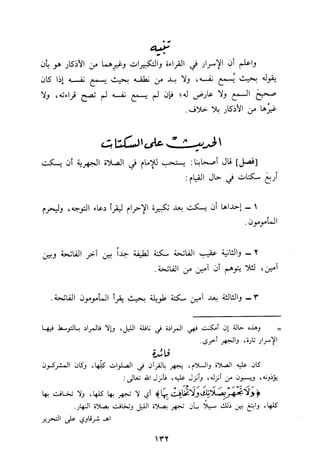 تنبيه
واعلم أن الإسرار في القراءة والتكبيرات وغيرهما من الأذكار هو بأن
يقوله بحيث يُسمع نفسه، ولا بد من نطقه بحيث يسمع نفسه إذا كان
صحيح السمع ولا عارض له؛ فإن لم يسمع نفسه لم تصح قراءته، ولا
غيرها من الأذكار بلا خلاف.
الحديث على السكتات
[فصل] قال أصحابنا: يستحب للإمام في الصلاة الجهرية أن يسكت
أربع سكتات في حال القيام:
١ - إحداها أن يسكت بعد تكبيرة الإحرام ليقرأ دعاء التوجه، وليحرم
المأمومون.
٢ - والثانية عقيب الفاتحة سكتة لطيفة جداً بين آخر الفاتحة وبين
آمين، لئلا يتوهم أن آمين من الفاتحة.
٣ - والثالثة بعد آمين سكتة طويلة بحيث يقرأ المأمومون الفاتحة.
= وهذه حالة إن أمكنت فهي المرادة في نافلة الليل، وإلا فالمراد بالتوسط فيها
الإسرار تارة، والجهر أخرى.
فائدة
كان عليه الصلاة والسلام، يجهر بالقرآن في الصلوات كلها، وكان المشركون
يؤذونه، ويسبون من أنزله، وأنزل عليه، فأنزل الله تعالى:
﴿وَلَا تَجْهَرْ بِصَلَاتِكَ وَلَا تُخَافِتْ بِهَا﴾ أي لا تجهر بها كلها، ولا تخافت بها
كلها، وابتغ بين ذلك سبيلاً بأن تجهر بصلاة الليل وتخافت بصلاة النهار.
اهـ شرقاوي على التحرير
١٣٢